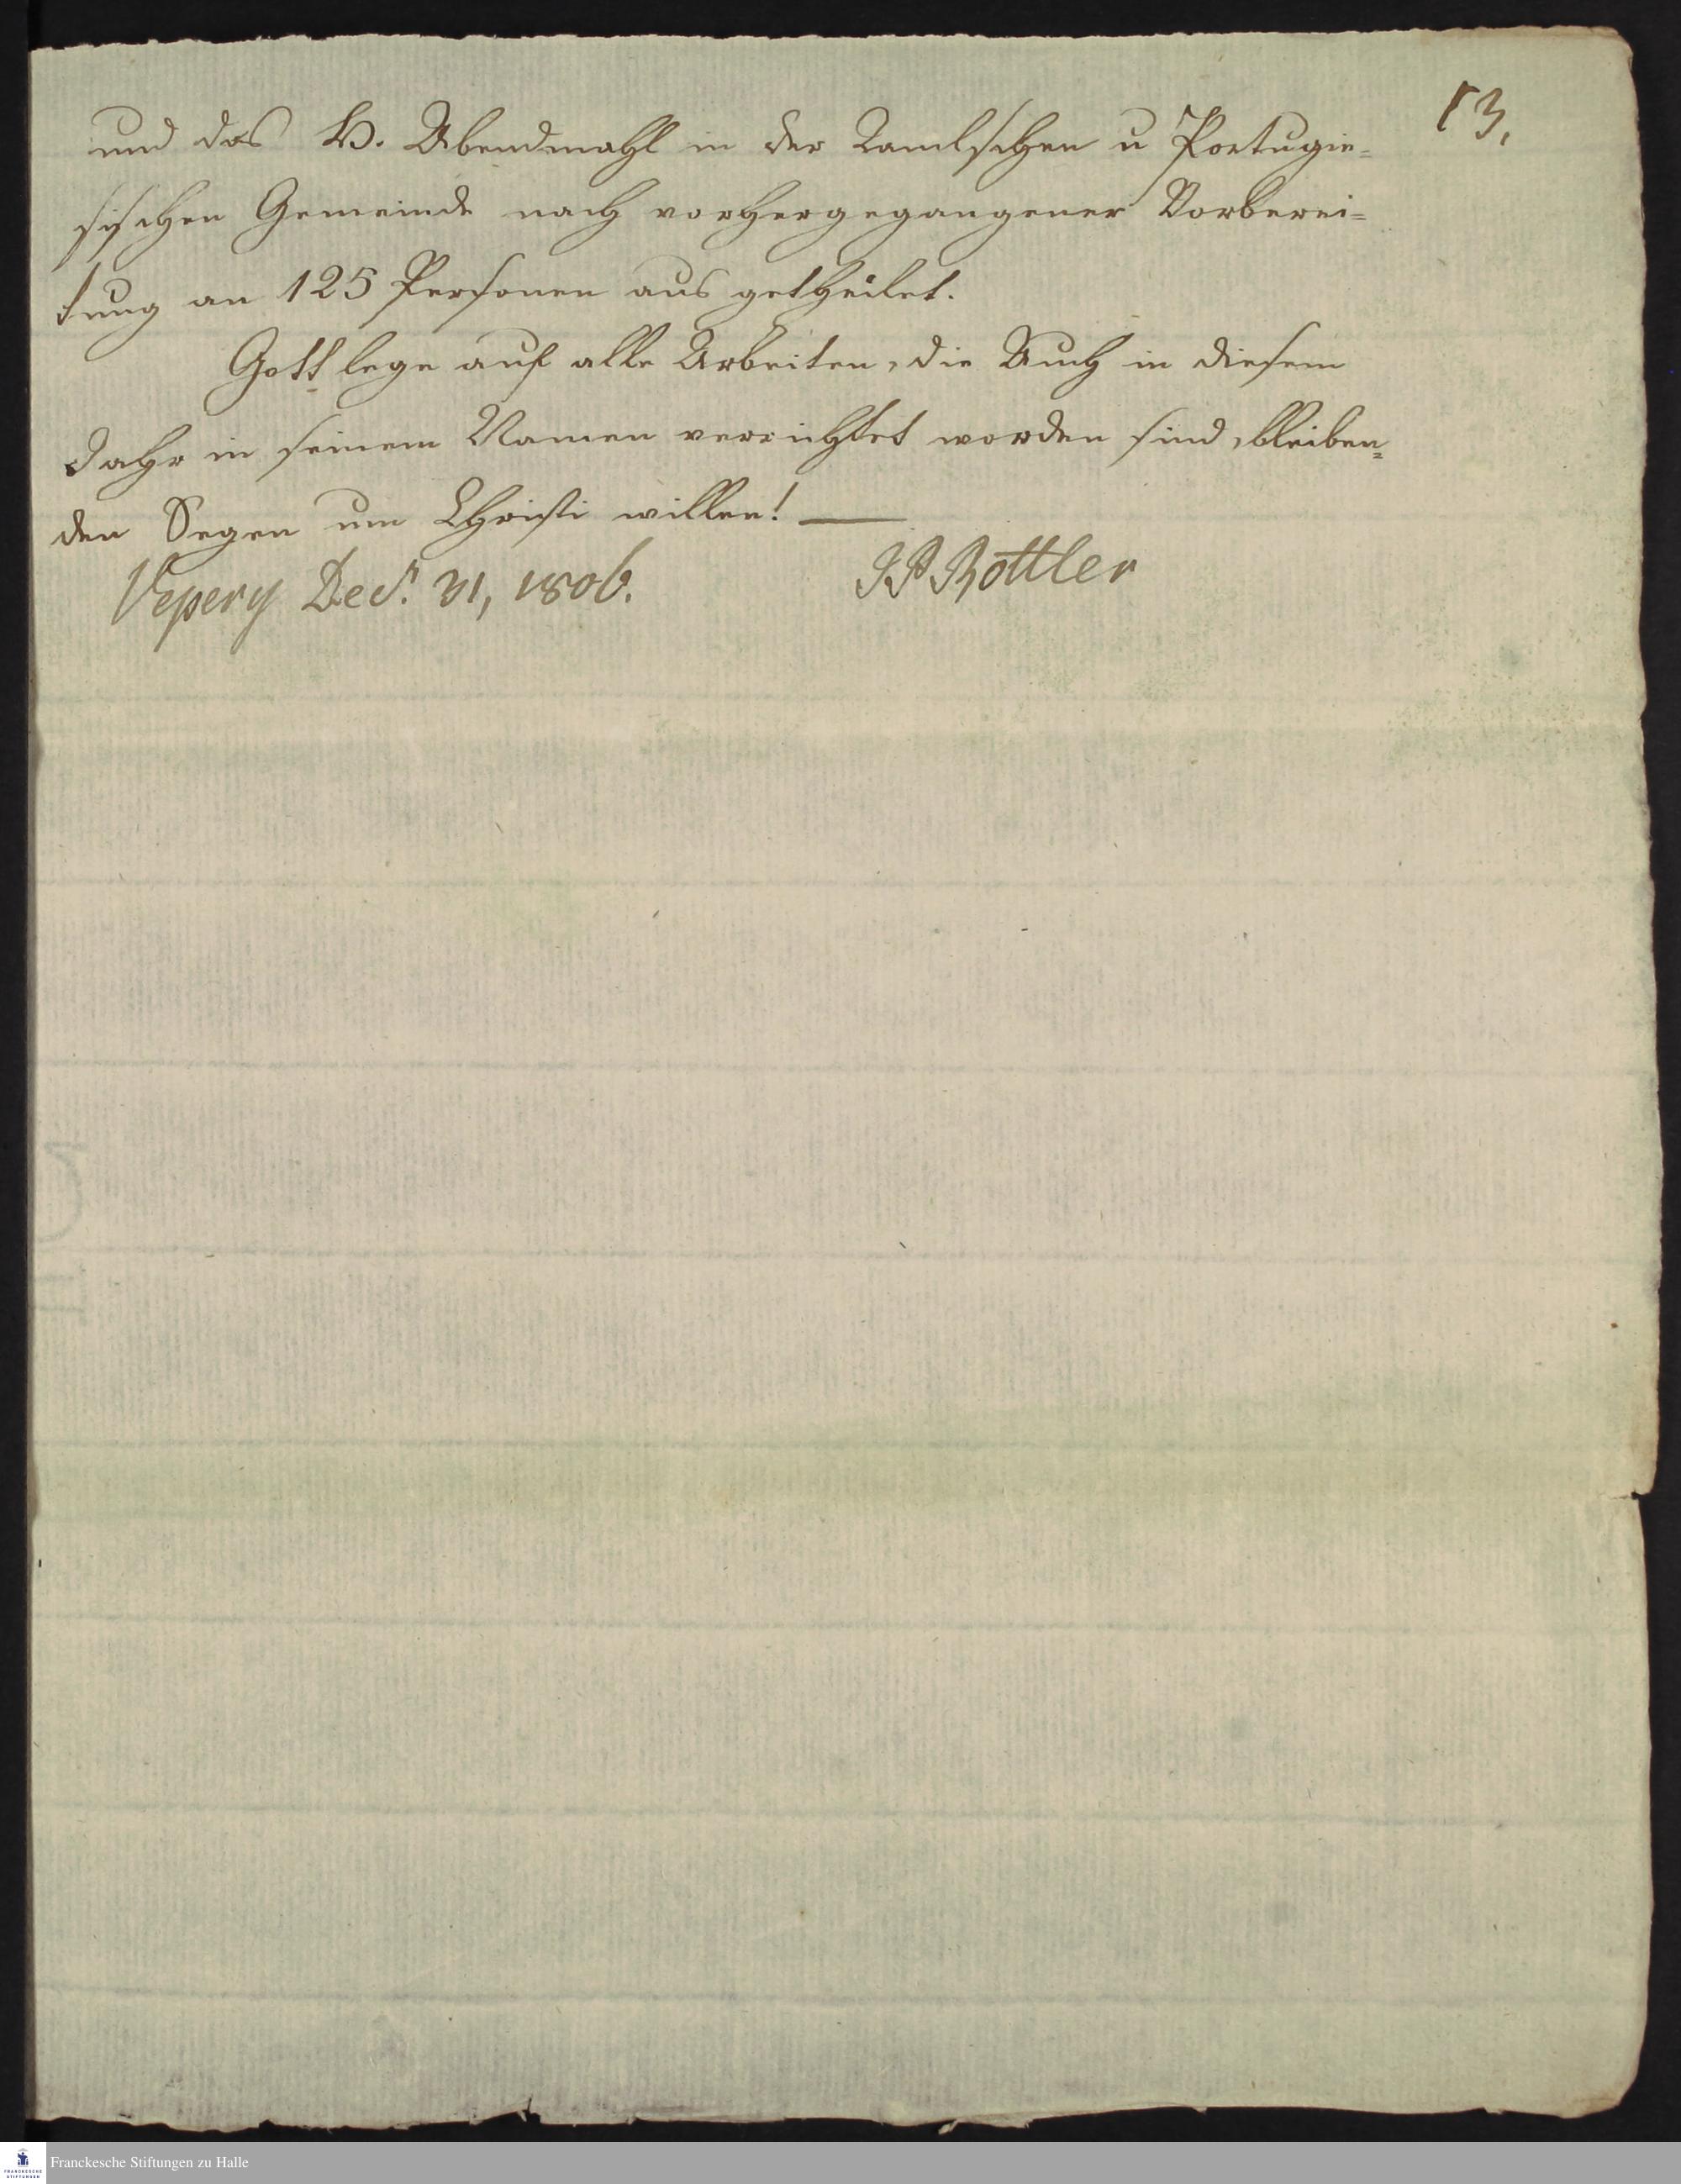 13,
und das H. Abendmahl in der Tamulschen u Portugie=
sischen Gemeinde nach vorhergegangener Vorberei=
tung an 125 Personen aus getheilet.
Gott lege auf alle Arbeiten, die Auch in diesem
Jahr in seinem Namen verrichtet worden sind, bleiben=
den Segen um Christi willen! —
Vepery Decr. 31, 1806. JP Rottler
FRANCKESCHE STIFTUNGEN
Franckesche Stiftungen zu Halle